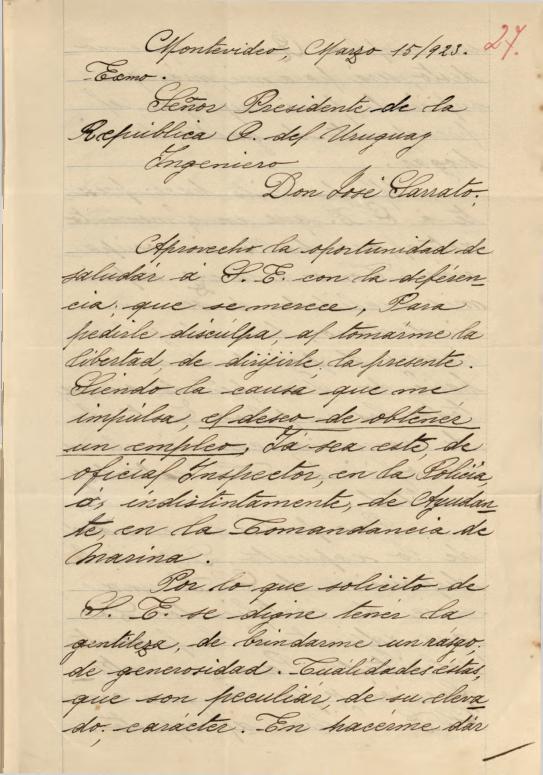 Montevideo, Marzo 15/923. 27.
Exmo.
Señor Presidente de la
República O. del Uruguay
Ingeniero
Don José Serrato,
Aprovecho la oportunidad de
saludár á S. E. con la deferén-
cia, que se merece, Para
pedirle disculpa, al tomárme la
libertad, de dirijirle, la presente.
Siendo la causa que me
impúlsa, el deseo de obtener
un empleo, Yá sea este, de
oficial Inspector, en la Policia,
o, indistintamente, de Ayudan-
te, en la Comandancia de
Marina.
Por lo que solicito de
S. E. se digne tenér la
gentileza, de brindarme un rasgo
de generosidad. Cualidades éstas,
que son peculiar, de su eleva-
do, carácter. En hacerme dár